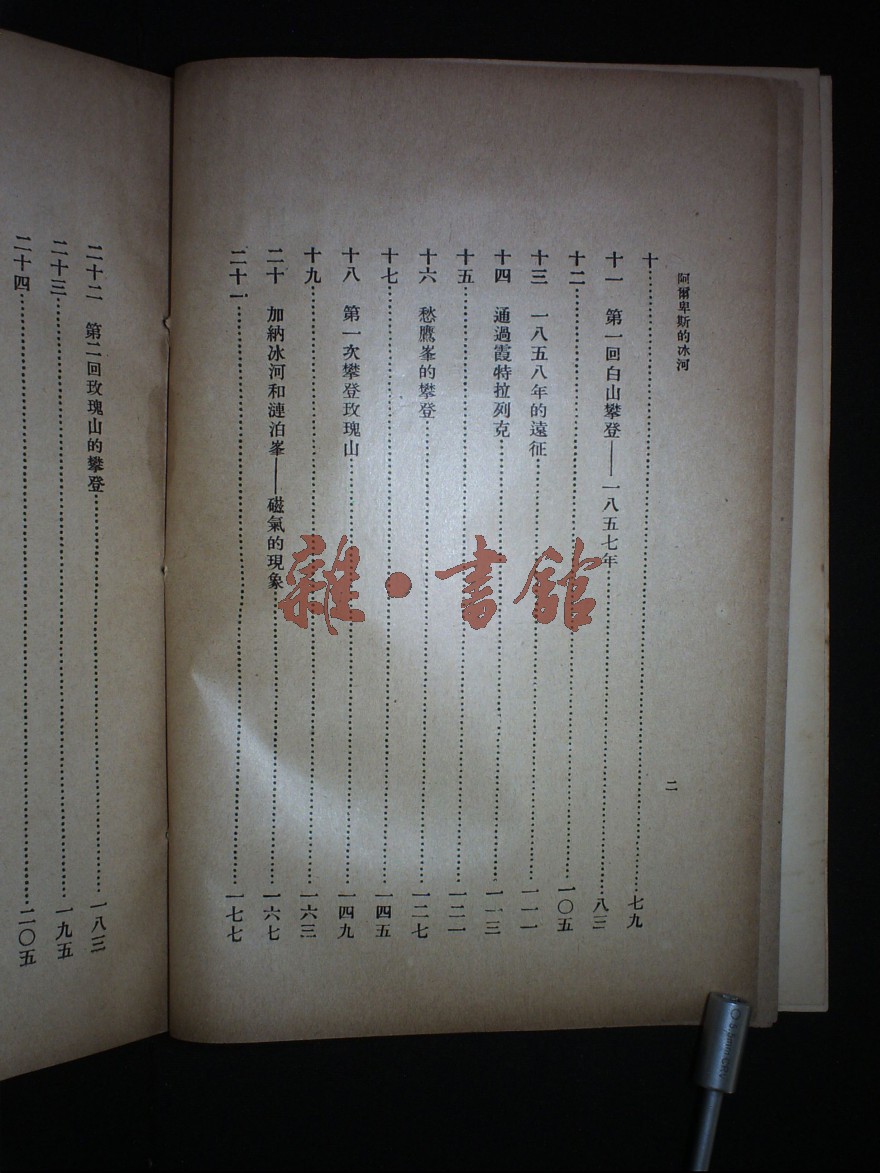 阿爾卑斯的冰河
二
十……七九
十一 第一回白山攀登——一八五七年……八三
十二……一〇五
十三 一八五八年的遠征……一一一
十四 通過霞特拉列克……一一三
十五……一二一
十六 愁鷹峯的攀登……一二七
十七……一四五
十八 第一次攀登玫瑰山……一四九
十九……一六三
二十 加納冰河和漣泊峯——磁氣的現象……一六七
二十一……一七七
二十二 第二回玫瑰山的攀登……一八三
二十三……一九五
二十四……二〇五
雜·書館